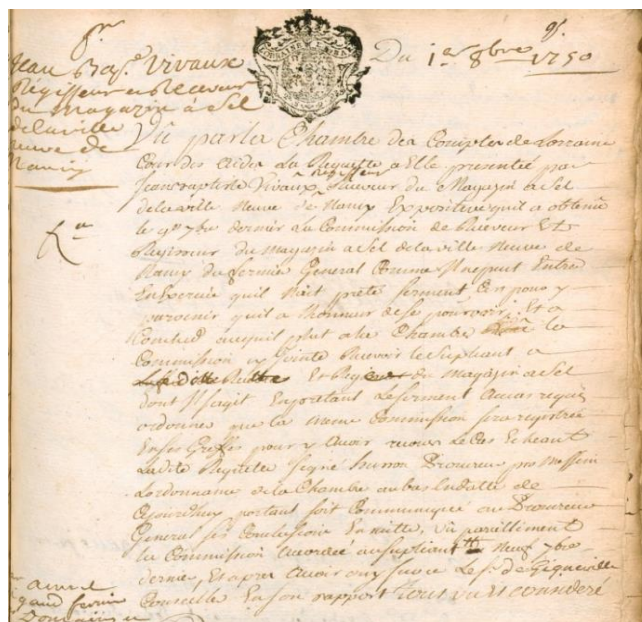 Du 1er 8bre 1750
Jean Bap.e Vivaux
Régisseur et Receveur
du Magazin à Sel
de la ville
neuve de
Nancy
Vû par la Chambre des Comptes de Lorraine
Cour des Aides La Requette a Elle presentée par
Jean Baptiste Vivaux Receveur du Magazin a Sel
de la ville Neuve de Nancy Expositive qu'il a obtenu
le 9e 7bre dernier La Commission de Receveur Et
Regisseur du Magazin a Sel de la ville Neuve de
Nancy du fermier General Comme Il ne peut Entrer
En Exercice qu'il n'ait prété serment C'est pour y
parvenir qu'il a l'honneur de se pourvoir, Et a
Conclud a ce qu'il plut a la Chambre la
Commission cy Jointe Recevoir le Supliant a
Et Regisseur du Magazin a Sel
dont Il s'agit En prétant Le serment au cas requis
ordonner que la meme Commission sera registrée
En ses Greffes pour y Avoir recours Le Cas Echeant
Ladite Requette signé Procureur
L'ordonnance de la Chambre au bas En datte de
Cejourdhuy portant soit Communiqué au Procureur
General ses Conclusions En suitte, Vû pareillement
la Commission accordée au supliant le Neuf 7bre
dernier, Et apres Avoir ouy Le Sr. de
Conseiller En son rapport tout vû et consideré